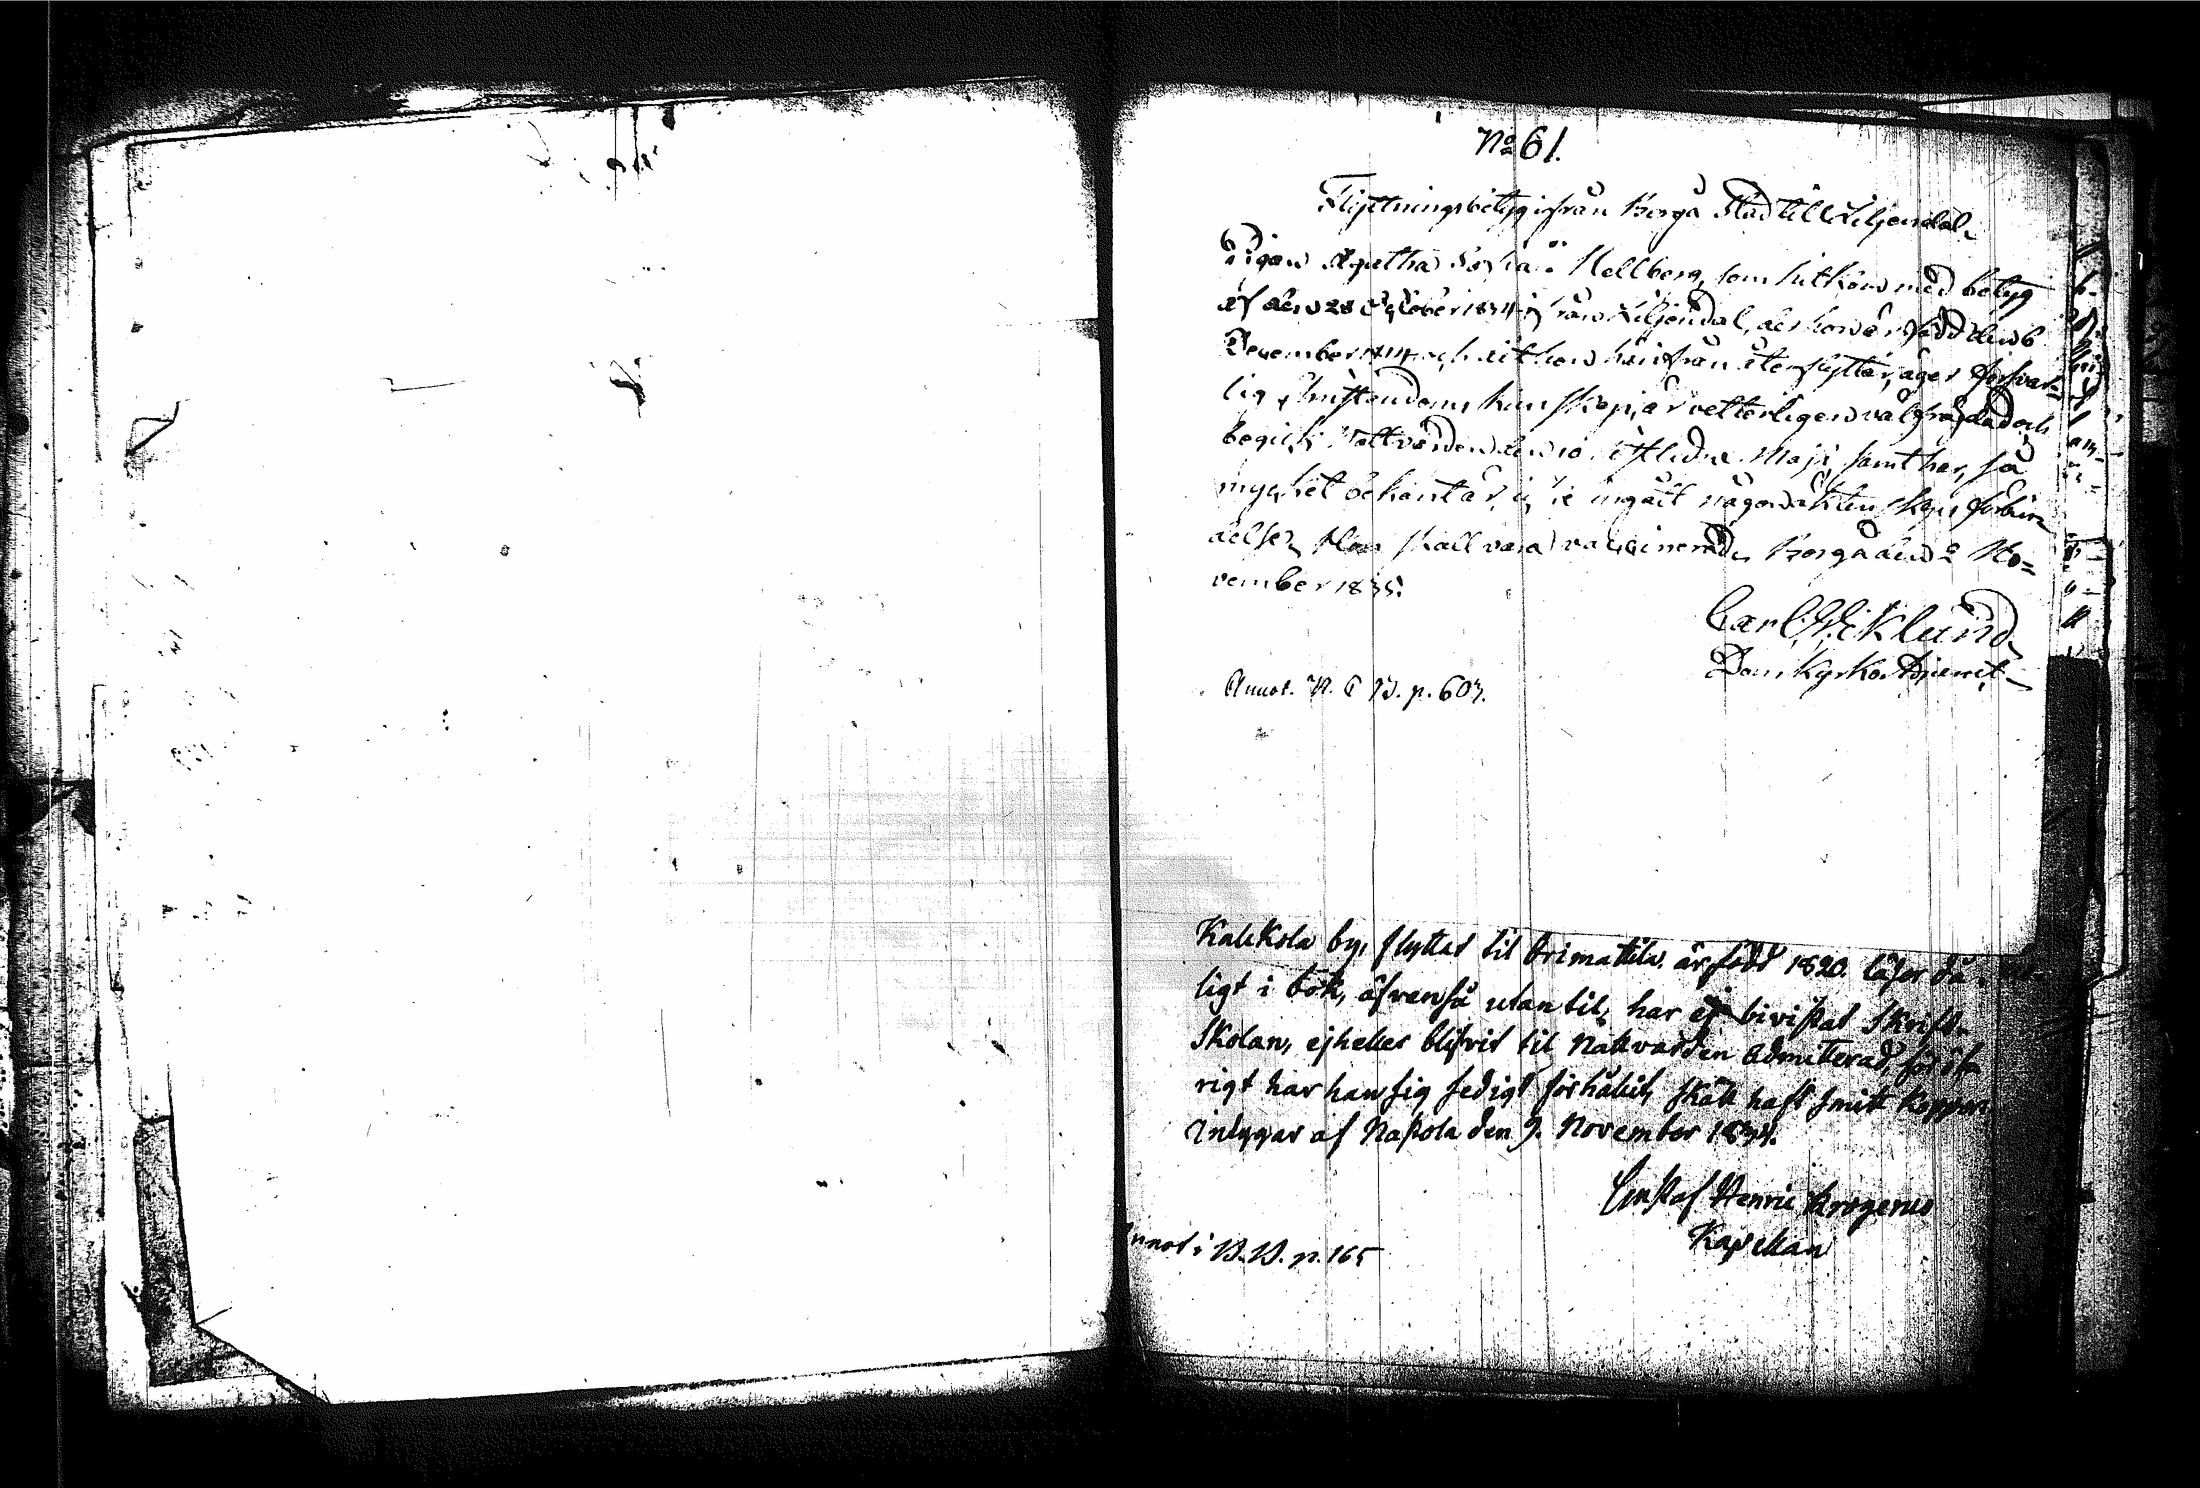 No 61.
Flyttningsbetyg ifrån Borgå Stad till Liljendal.
Pigan Agatha Sophia Hellberg, som hitkom med betyg
af den 28 October 1834 ifrån Liljendal, der hon är född den 6
December och nu hon härifrån återflyttar, äger försvar-
lig Christendoms kunskap, är vetterligen välfrägdad och
begick Nattvarden den 10 sistledne Maji, samt har, så
mycket bekant är, icke ingått någon äktenskaps förbin-
delse. Hon skall vara vaccinerad. Borgå den 2 No-
vember 1835.
Carl Eklund
DomkyrkoAdjunct
Annot. p. 607.
Kalkola by, flyttat til Orimattila, är född 1820. läser då-
ligt i bok, äfvenså utan til, har ej bivistat Skrift-
Skolan, ejheller blifvit til Nattvarden admitterad, för öf-
rigt har han sig sedigt förhållit, skall haft smitt koppor
intygar af Napola den 9. November 1834.
Gustaf Henric Krogerus
Kapellan
Annot i p. 165